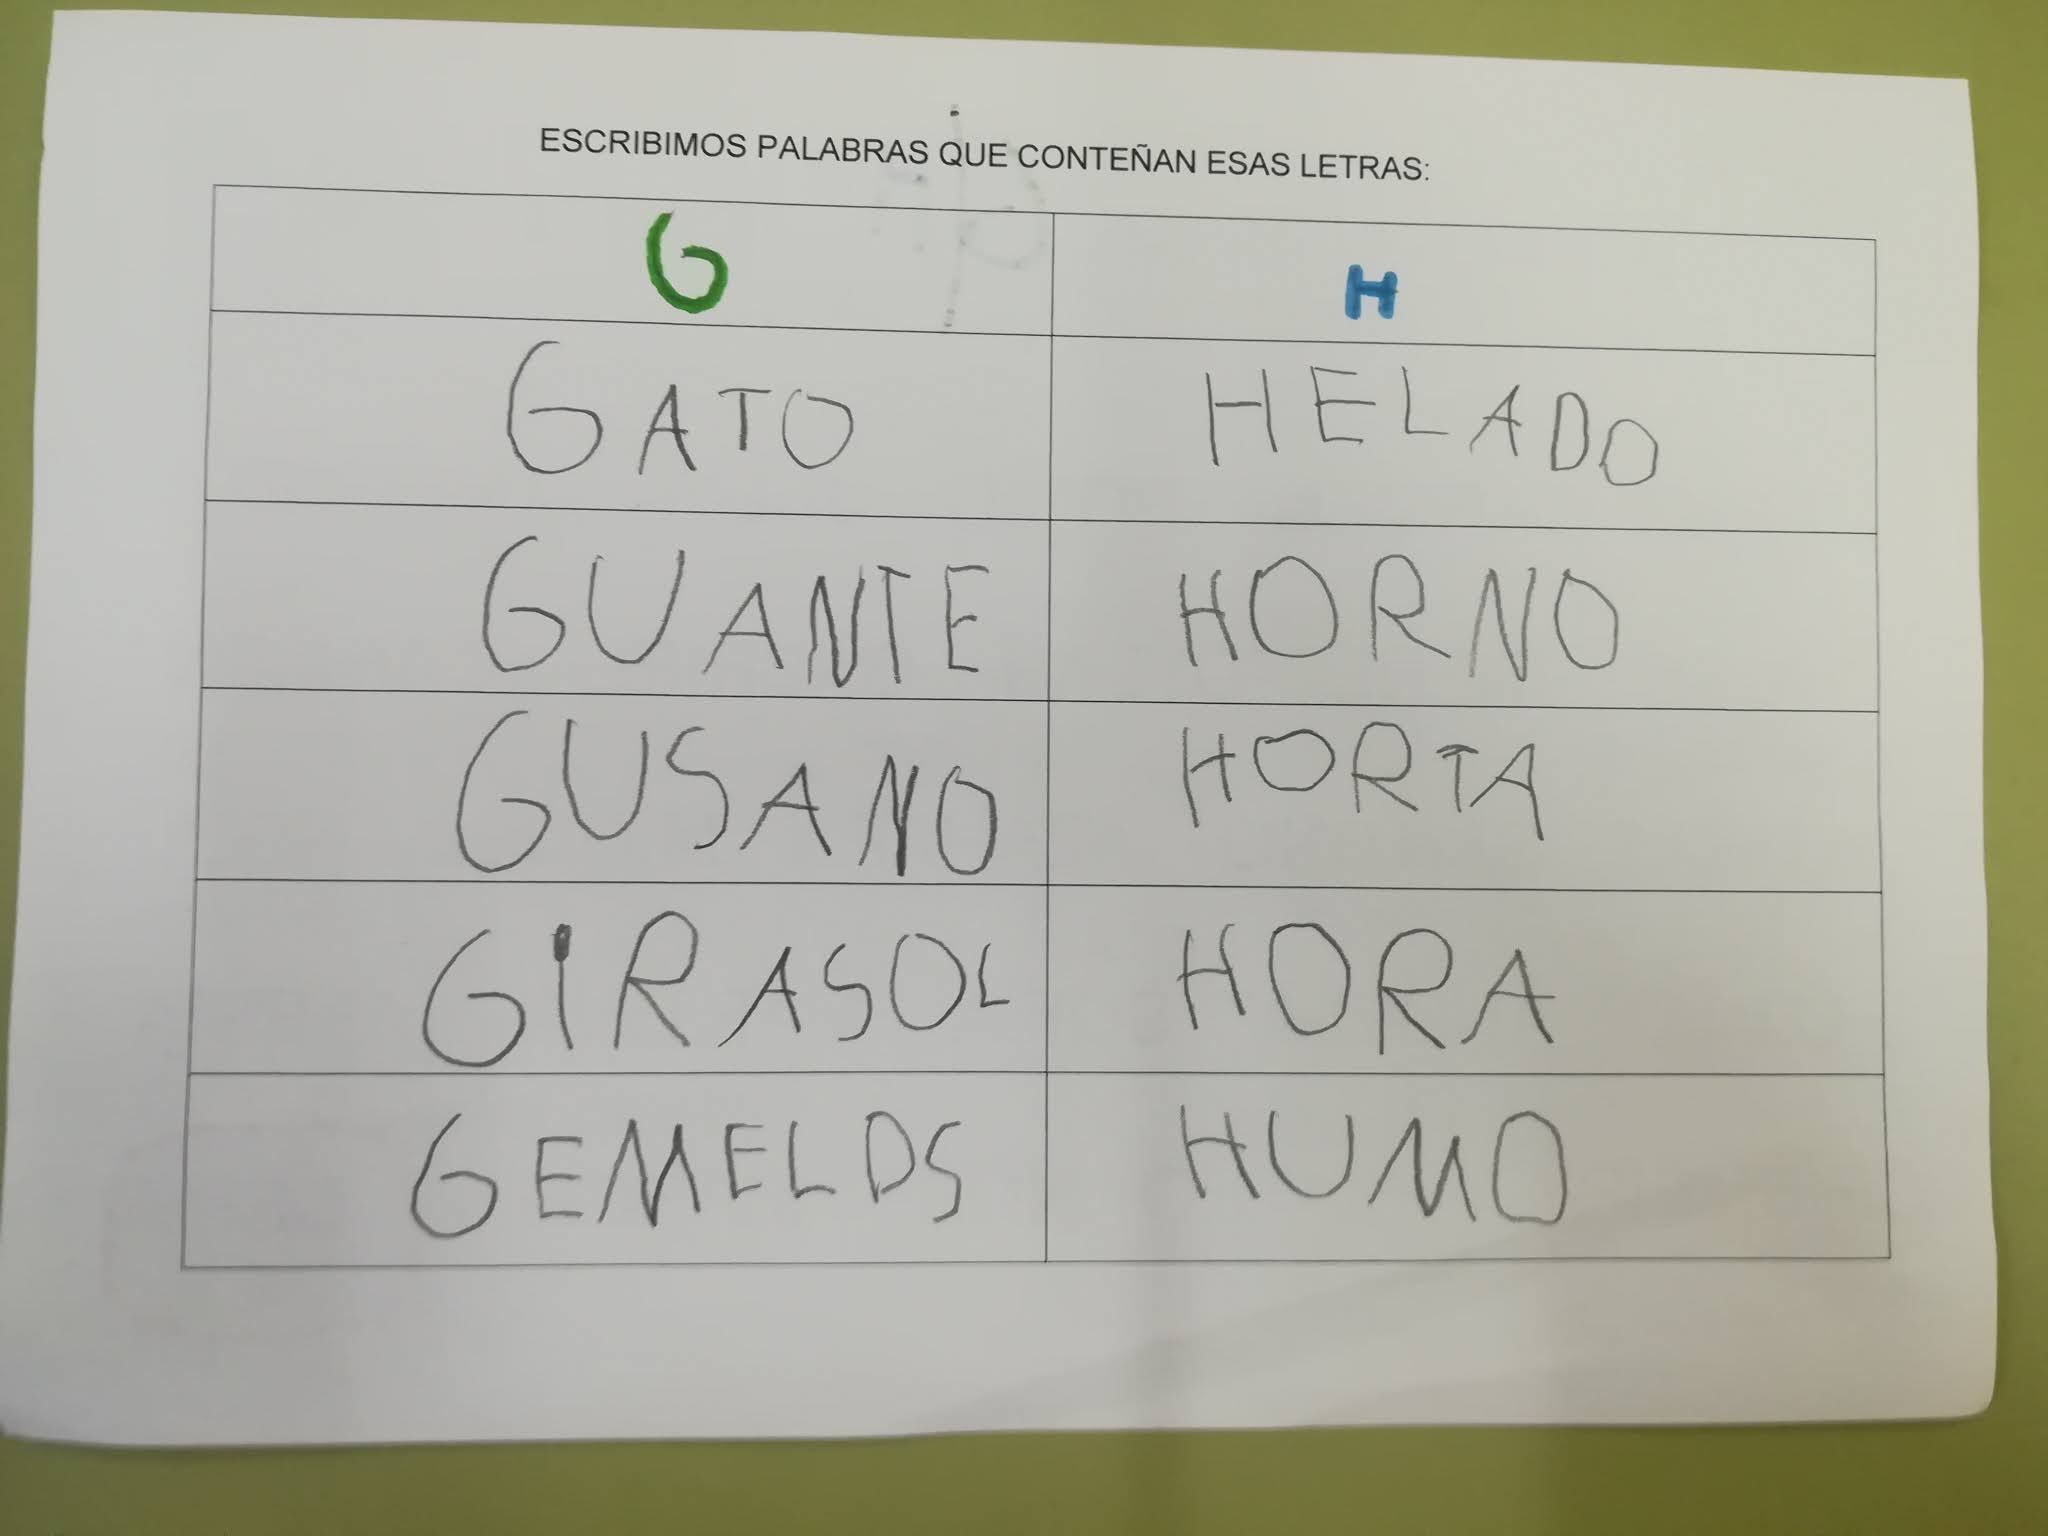 ESCRIBIMOS PALABRAS QUE CONTEÑAN ESAS LETRAS:
G H
GATO HELADO
GUANTE HORNO
GUSANO HORTA
GIRASOL HORA
GEMELOS HUMO